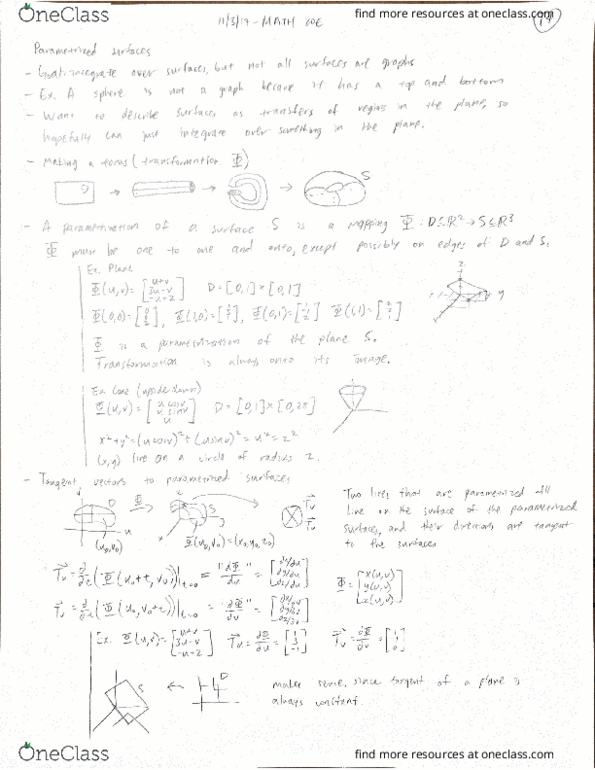 OneClass
find more resources at oneclass.com
11/3/17 - MATH 20E
Parametrized surfaces
- Goal: integrate over surfaces, but not all surfaces are graphs
- Ex. A sphere is not a graph because it has a top and bottom
- Want to describe surfaces as transfers of regions in the plane, so
hopefully can just integrate over something in the plane.
- Making a torus (transformation Φ)
D S
- A parametrization of a surface S is a mapping Φ: D⊆R² → S⊆R³
Φ must be one to one and onto, except possibly on edges of D and S.
Ex. Plane
Φ(u,v) = [u+v, 3u-v, -u+2] D = [0,1]×[0,1]
Φ(0,0)= Φ(1,0)= Φ(0,1)= Φ(1,1)=
Φ is a parametrization of the plane S.
Transformation is always onto its image.
z
y
Ex. Cone (upside down)
Φ(u,v) = [u cosv, u sinv, u] D = [0,1]×[0,2π]
x²+y² = (u cosv)² + (u sinv)² = u² = z²
(x,y) live on a circle of radius z.
- Tangent vectors to parametrized surfaces
D Φ S
u
(u₀,v₀) Φ(u₀,v₀)=(x₀,y₀,z₀)
Two lines that are parametrized will
line on the surface of the parametrized
surfaces, and their directions are tangent
to the surfaces
Tu = ∂/∂t (Φ(u₀+t, v₀))|t=0 = "∂Φ/∂u" = [∂x/∂u, ∂y/∂u, ∂z/∂u]
Φ = [x(u,v), y(u,v), z(u,v)]
Tv = ∂/∂t (Φ(u₀, v₀+t))|t=0 = "∂Φ/∂v" = [∂x/∂v, ∂y/∂v, ∂z/∂v]
Ex. Φ(u,v) = [u+v, 3u-v, -u+2] Tu = ∂Φ/∂u = [1, 3, -1] Tv = ∂Φ/∂v =
S ← D
makes sense, since tangent of a plane is
always constant.
OneClass
find more resources at oneclass.com